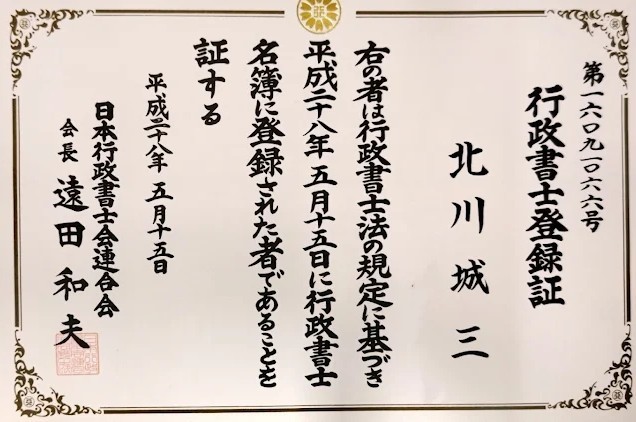 第一六〇九一〇六六号
行政書士登録証
北川城三
右の者は行政書士法の規定に基づき
平成二十八年五月十五日に行政書士
名簿に登録された者であることを
証する
平成二十八年五月十五日
日本行政書士会連合会
会長 遠田和夫